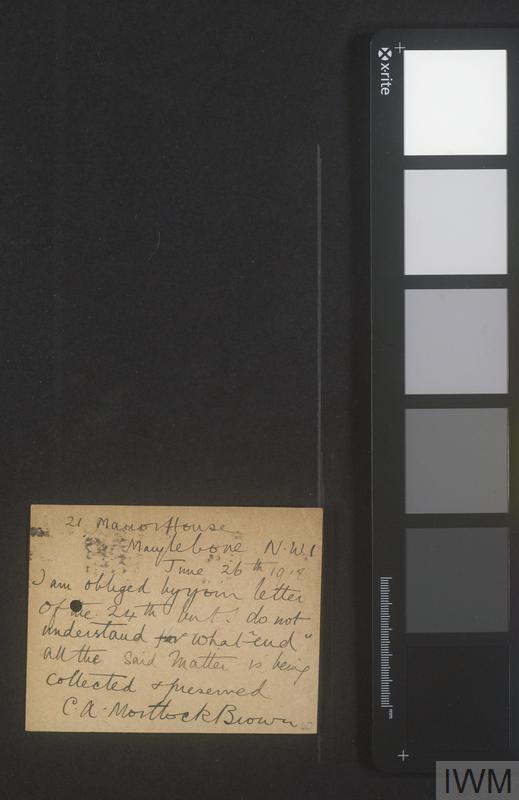 21 Manor House
Marylebone N.W.1
June 26th 1918
I am obliged by your letter
of the 24th but do not
understand for what "end"
all the said matter is being
collected & preserved
C.A. Mortlock Brown
x·rite
mm
IWM